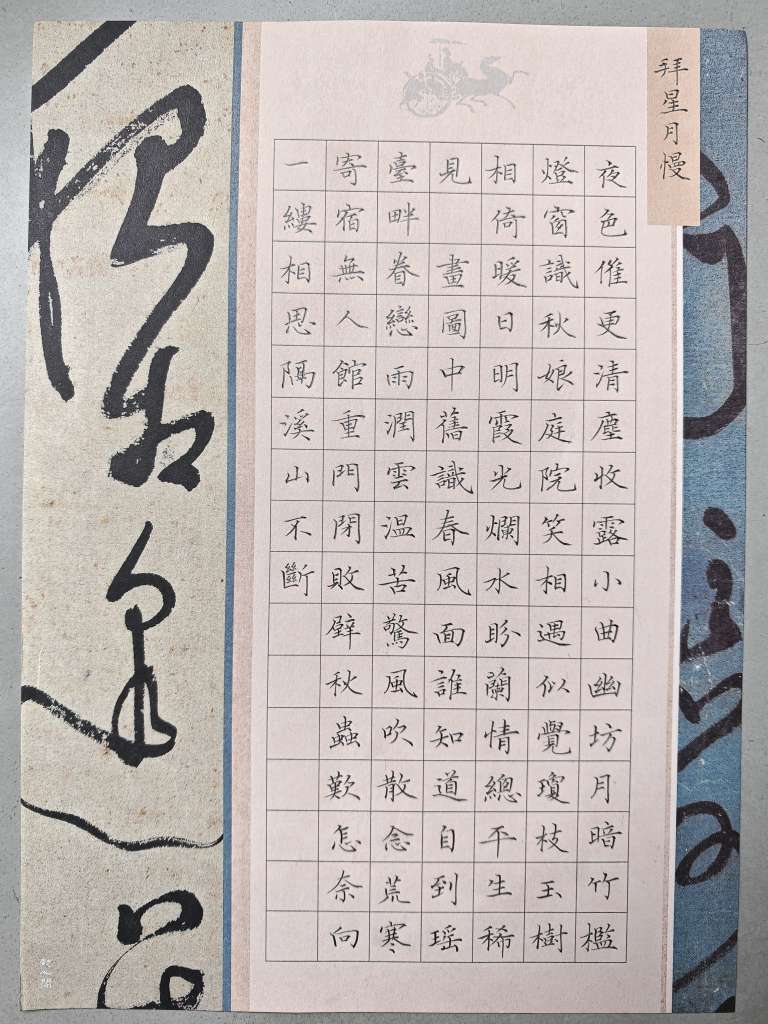 拜星月慢
夜色催更清塵收露小曲幽坊月暗竹檻
燈窗識秋娘庭院笑相遇似覺瓊枝玉樹
相倚暖日明霞光爛水盼蘭情總平生稀
見 畫圖中舊識春風面誰知道自到瑶
臺畔眷戀雨潤雲温苦驚風吹散念荒寒
寄宿無人館重門閉敗壁秋蟲歎怎奈向
一縷相思隔溪山不斷